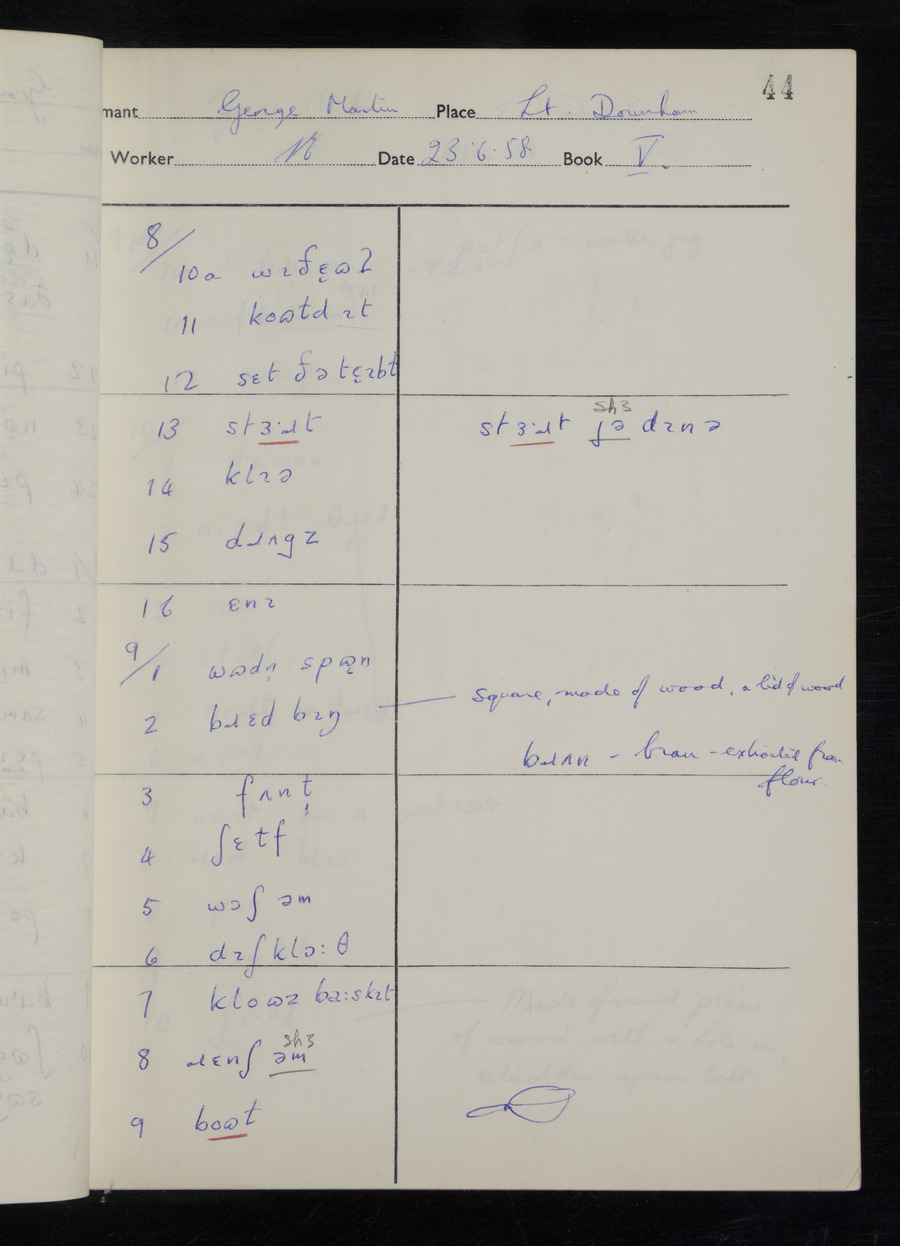 44
mant George Martin Place Lt. Downham
Worker Date 23·6·58 Book V
8/
10a
11
12
13 stɜ·ɹt stɜ·ɹt ʃə dɪnə
sh3
14 klɪə
15 dɹʌgz
16 ɛnɪ
9/1
2 bɹɛd bɪŋ square, made of wood, a lid of wood
bɹʌn - bran - extracted from
flour.
3
4 ʃɛtf
5 wɔʃ əm
6 dɪʃklɔ:θ
7 kloʊz ba:skɪt
sh3
8 ɹɛnʃ əm
9 boʊt